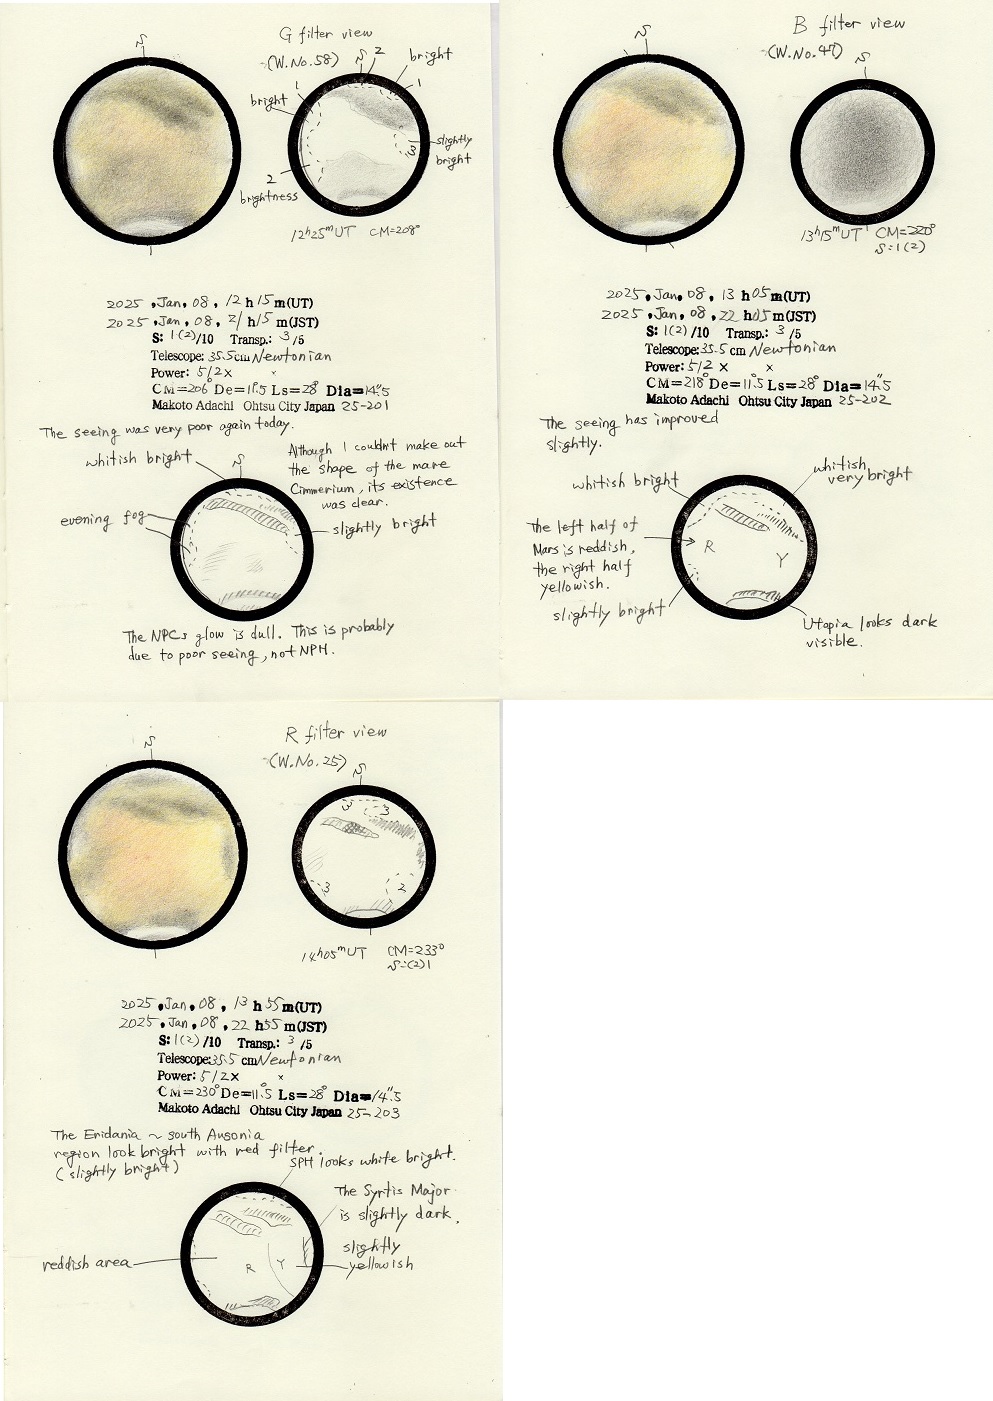 S
G filter view
(W.No.58)
S
2
bright
1
1
bright
slightly
bright
3
2
brightness
12h25mUT CM=208°
2025 , Jan, 08, 12 h 15 m(UT)
2025 , Jan, 08, 21 h 15 m(JST)
S: 1(2)/10 Transp.: 3 /5
Telescope: 35.5cm Newtonian
Power: 512x x
CM=206° De=11.5 Ls=28° Dia=14.″5
Makoto Adachi Ohtsu City Japan 25-201
The seeing was very poor again today.
whitish bright
S
Although I couldn't make out
the shape of the mare
Cimmerium, its existence
was clear.
evening fog
slightly bright
The NPCs glow is dull. This is probably
due to poor seeing, not NPH.
S
B filter view
(W.No.47)
S
13h15mUT CM=220°
S:1(2)
2025 , Jan, 08, 13 h 05 m(UT)
2025 , Jan, 08, 22 h 05 m(JST)
S: 1(2)/10 Transp.: 3 /5
Telescope: 35.5 cm Newtonian
Power: 512 x x
CM=218° De=11.5 Ls=28° Dia=14.″5
Makoto Adachi Ohtsu City Japan 25-202
The seeing has improved
slightly.
whitish bright
whitish
very bright
The left half of
Mars is reddish,
the right half
yellowish.
R
Y
slightly bright
Utopia looks dark
visible.
S
R filter view
(W.No.25)
S
3
3
3
2
14h05mUT CM=233°
S=(2)1
2025 , Jan, 08, 13 h 55 m(UT)
2025 , Jan, 08, 22 h 55 m(JST)
S: 1(2)/10 Transp.: 3 /5
Telescope: 35.5 cm Newtonian
Power: 512x x
CM=230° De=11.5 Ls=28° Dia=14.″5
Makoto Adachi Ohtsu City Japan 25-203
The Eridania ~ south Ausonia
region look bright with red filter.
(slightly bright)
SPH looks white bright.
The Syrtis Major
is slightly dark.
slightly
yellowish
reddish area
R
Y